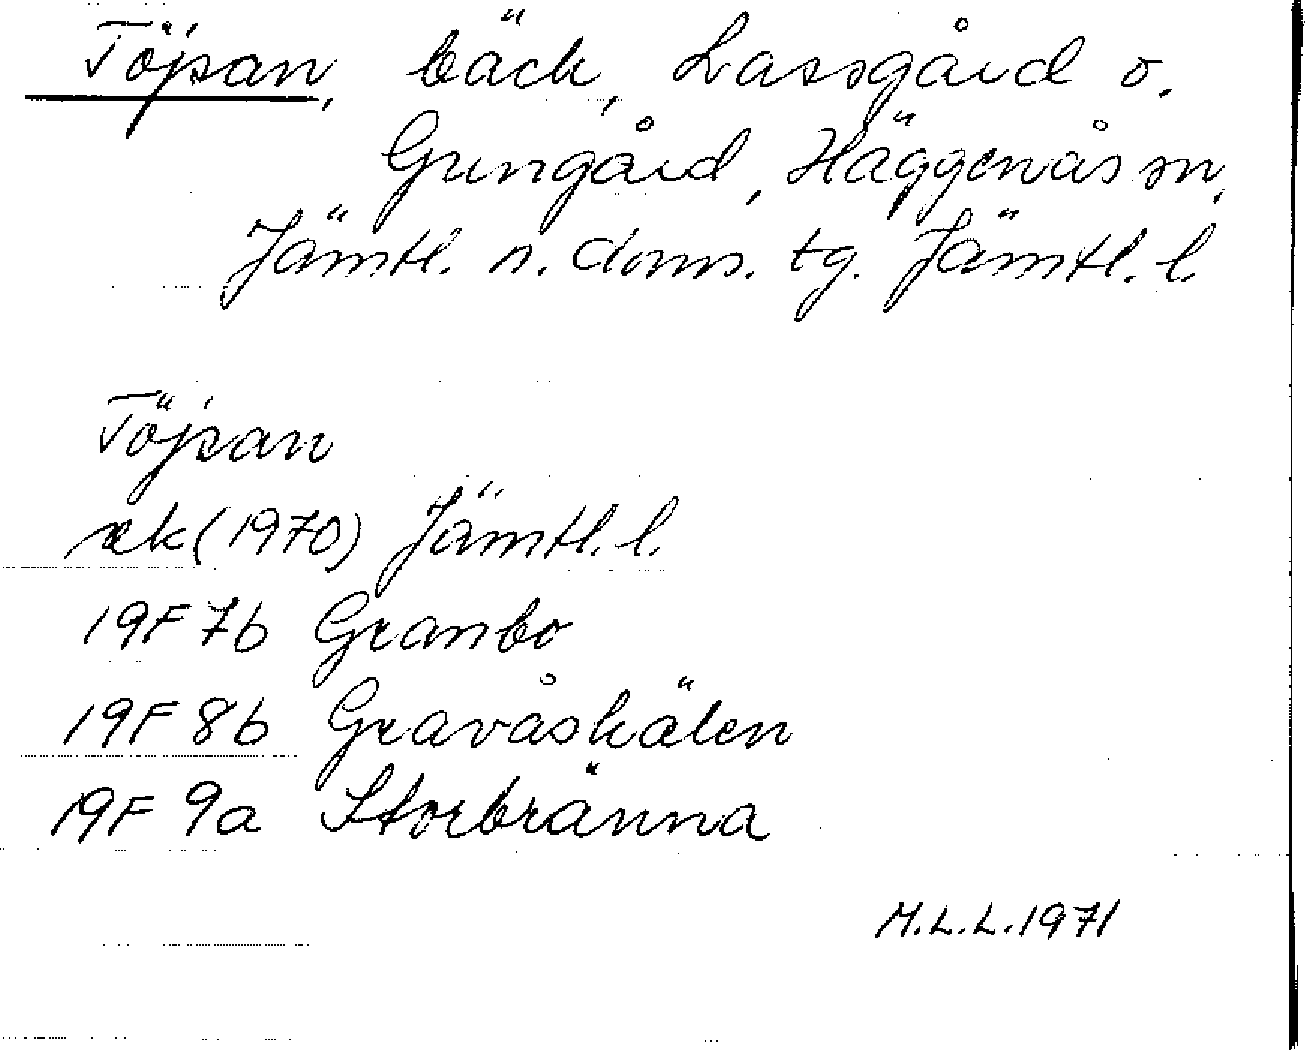 Töjsan, bäck, Lassgård o.
Gungård, Häggenås sn,
Jämtl. n. doms. tg. Jämtl. l.
Töjsan
ek (1970) Jämtl. l.
19F 7b Granbo
19F 8b Gravåskälen
19F 9a Storbränna
M.L.L. 1971